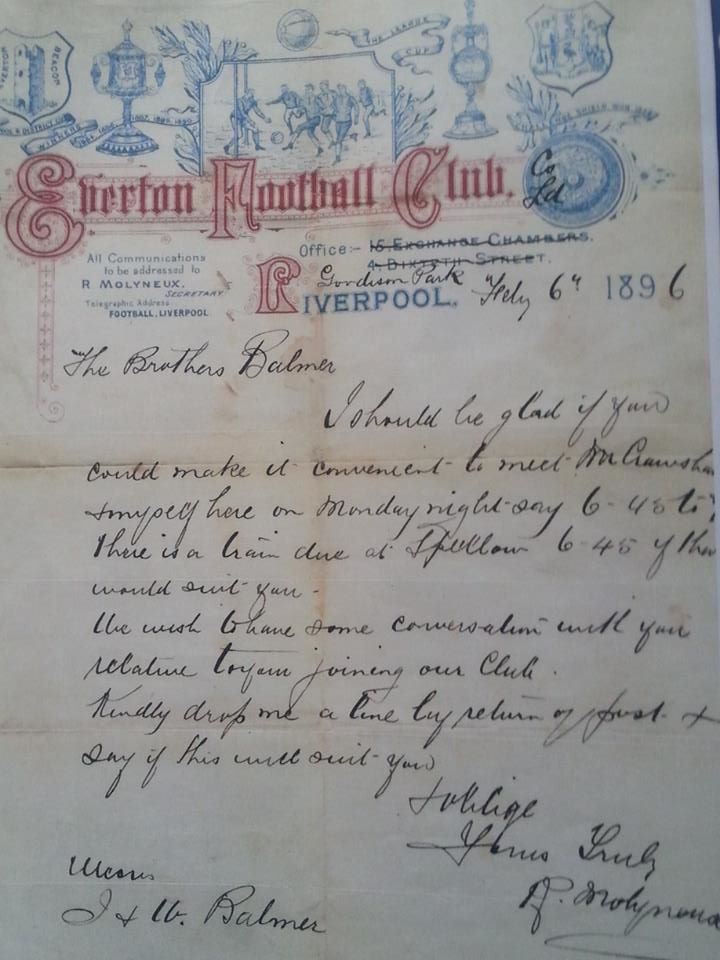 EVERTON
BEACON
THE LEAGUE
CUP
WINNERS
Everton Football Club. Co
Ld
All Communications
to be addressed to
R MOLYNEUX,
SECRETARY
Telegraphic Address
FOOTBALL, LIVERPOOL
Office:- 15. EXCHANGE CHAMBERS.
4. BIXTETH STREET.
Goodison Park
LIVERPOOL, Feby 6th 1896
The Brothers Balmer
I should be glad if you
could make it convenient to meet Mr
& myself here on Monday night say 6-45 to
There is a train due at Spellow 6-45 if
would suit you -
We wish to have some conversation with you
relative to your joining our Club.
Kindly drop me a line by return of post &
say if this will suit you
& oblige
Yours Truly
R. Molyneux
Messrs
J & W. Balmer